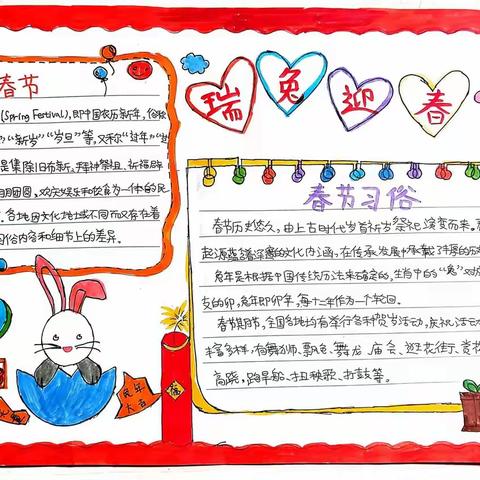 瑞兔迎春
春节
(Spring Festival),即中国农历新年,俗称
”“新岁”“岁旦”等,又称“过年”“
是集除旧布新、拜神祭祖、祈福辟
朋团圆,欢庆娱乐和饮食为一体的民
各地因文化地域不同而又存在着
习俗内容和细节上的差异。
春节习俗
春节历史悠久,由上古时代岁首祈岁祭祀演变而来。
起源蕴含着深邃的文化内涵,在传承发展中承载了丰厚的历
兔年是根据中国传统历法来确定的,生肖中的“兔”对
支的卯,兔年即卯年,每十二年作为一个轮回。
春节期间,全国各地均有举行各种贺岁活动,庆祝活动
丰富多样,有舞狮、飘色、舞龙、庙会、逛花街、赏花
高跷,跑旱船、扭秧歌、打鼓等。
兔年
大吉
福